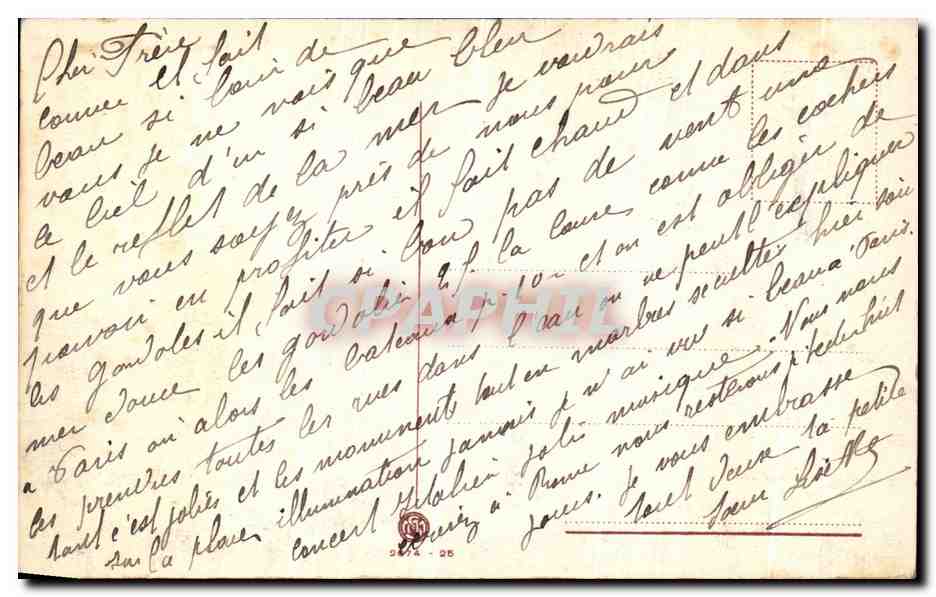 Cher Frère
comme il fait
beau si loin de
vous je ne vois que
le ciel d'un si beau bleu
et le reflet de la mer je voudrais
que vous soyez près de nous pour
pouvoir en profiter il fait chaud et dans
les gondoles il fait si bon pas de vent une
mer douce les gondoliers la comme les cochers
a Paris ou alors les bateaux et on est obliger de
les prendres toutes les rues dans l'eau on ne peut l'expliquer
tant c'est jolies et les monuments tout en marbres sculttés hier soir
sur la place illumination jamais je n'ai vue si beau a Paris.
concert Italien jolie musique. Vous nous
a Rome nous resterons
jours. Je vous embrasse
tout deux ta petite
soeur
CPAPHIL
2874 - 25